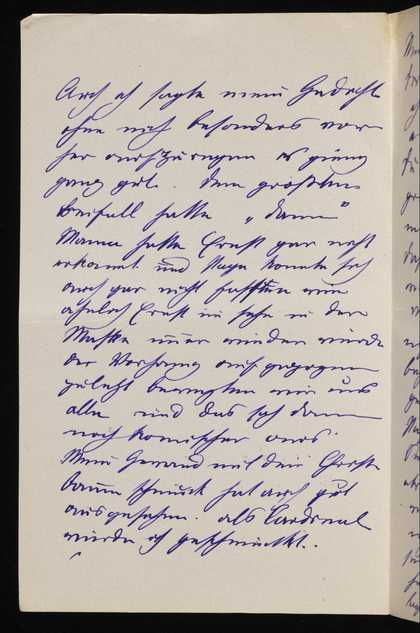 Auch ich sagte mein Gedicht
ohne mich besonders vor
her aufzuregen es ging
ganz gut. Den größten
Beifall hatte „dann"
Mama hatte Ernst gar nicht
erkannt und Papa konnte sich
auch gar nicht fassen wie
ähnlich Ernst im sehe in der
Maske immer wieder wurde
der Vorhang aufgezogen
zuletzt bewegten wir uns
alle und das sah dann
noch komischer aus.
Mein Gewand mit den Christ
baum schmuck hat auch gut
ausgesehen. als Cardinal
wurde ich geschminkt.